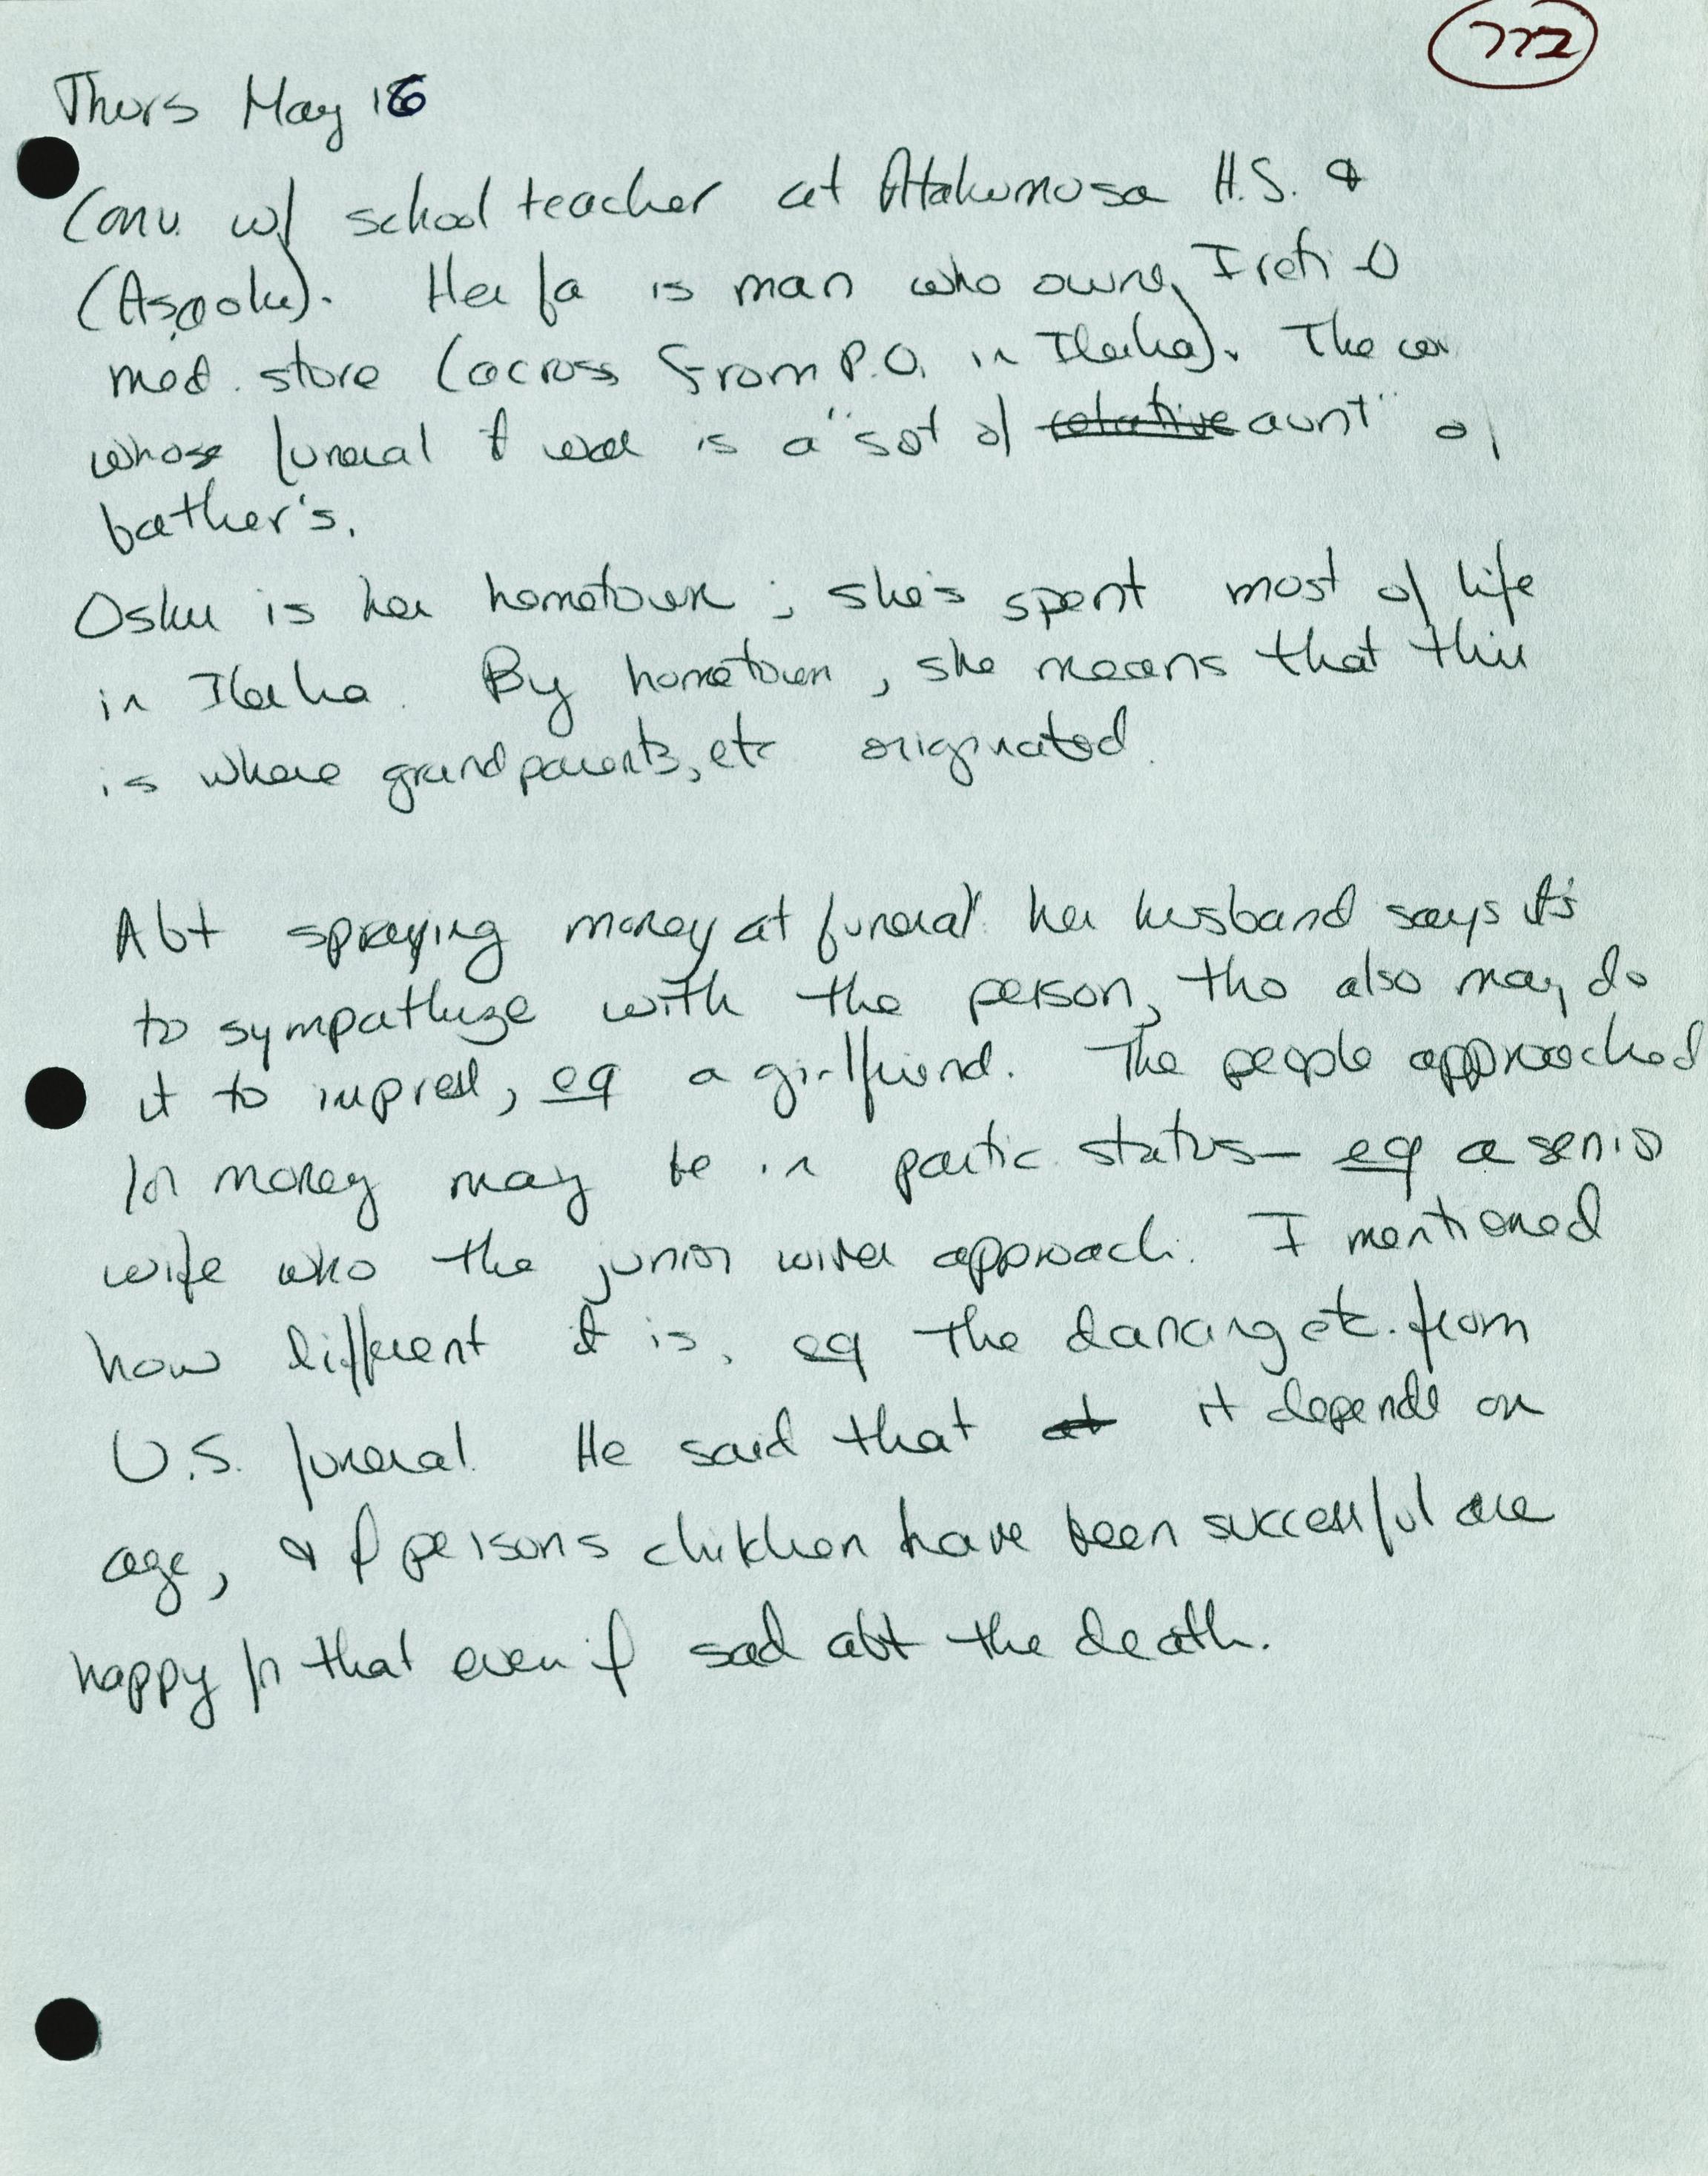 772
Thurs May 16
Conv. w/ school teacher at Atakumosa H.S. &
Her fa is man who owns Ireti-O
med. store (across from P.O. in Ilesha). The
whose funeral it was is a "sort of relative aunt" of
father's.
Oshu is her hometown; she's spent most of life
in Ilesha. By hometown, she means that this
is where grandparents, etc originated.
Abt spraying money at funeral her husband says it's
to sympathize with the person, tho also may do
it to impress, eg a girlfriend. The people approached
for money may be in partic. status — eg a senior
wife who the junior wives approach. I mentioned
how different it is, eg the dancing etc. from
U.S. funeral. He said that at it depends on
age, & if person's children have been successful are
happy for that even if sad abt the death.